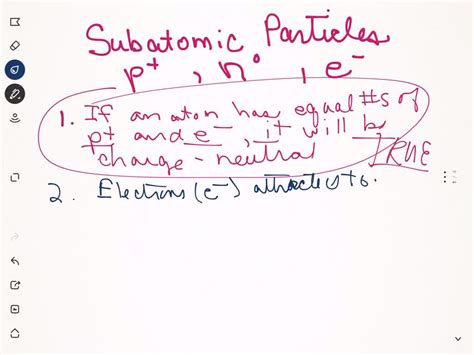 Subatomic Particles
p⁺, n⁰, e⁻
1. If an atom has equal #s of
p⁺ and e⁻, it will be
charge-neutral TRUE
2. Electrons (e⁻) to